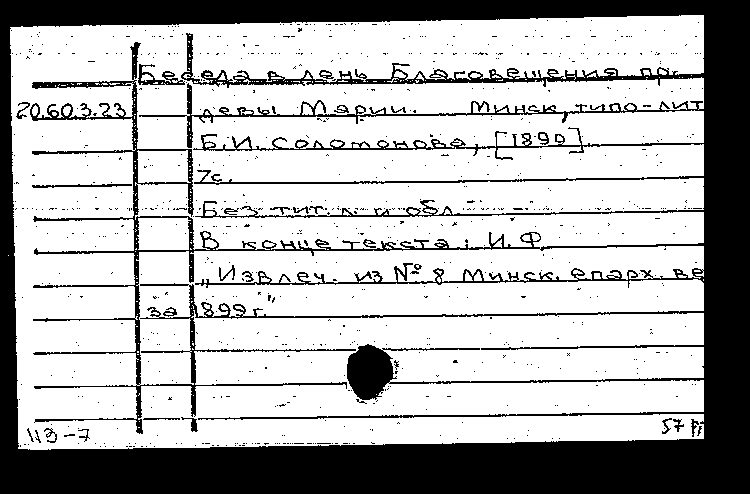 Беседа в день Благовещения пр.
20.60.3.23 девы Марии. Минск, типо-лит
Б.И. Соломонова, [1890]
7с.
Без тит. л. и обл.
В конце текста: И.Ф.
„Извлеч. из № 8 Минск. епарх. ве
за 1899 г."
113-7